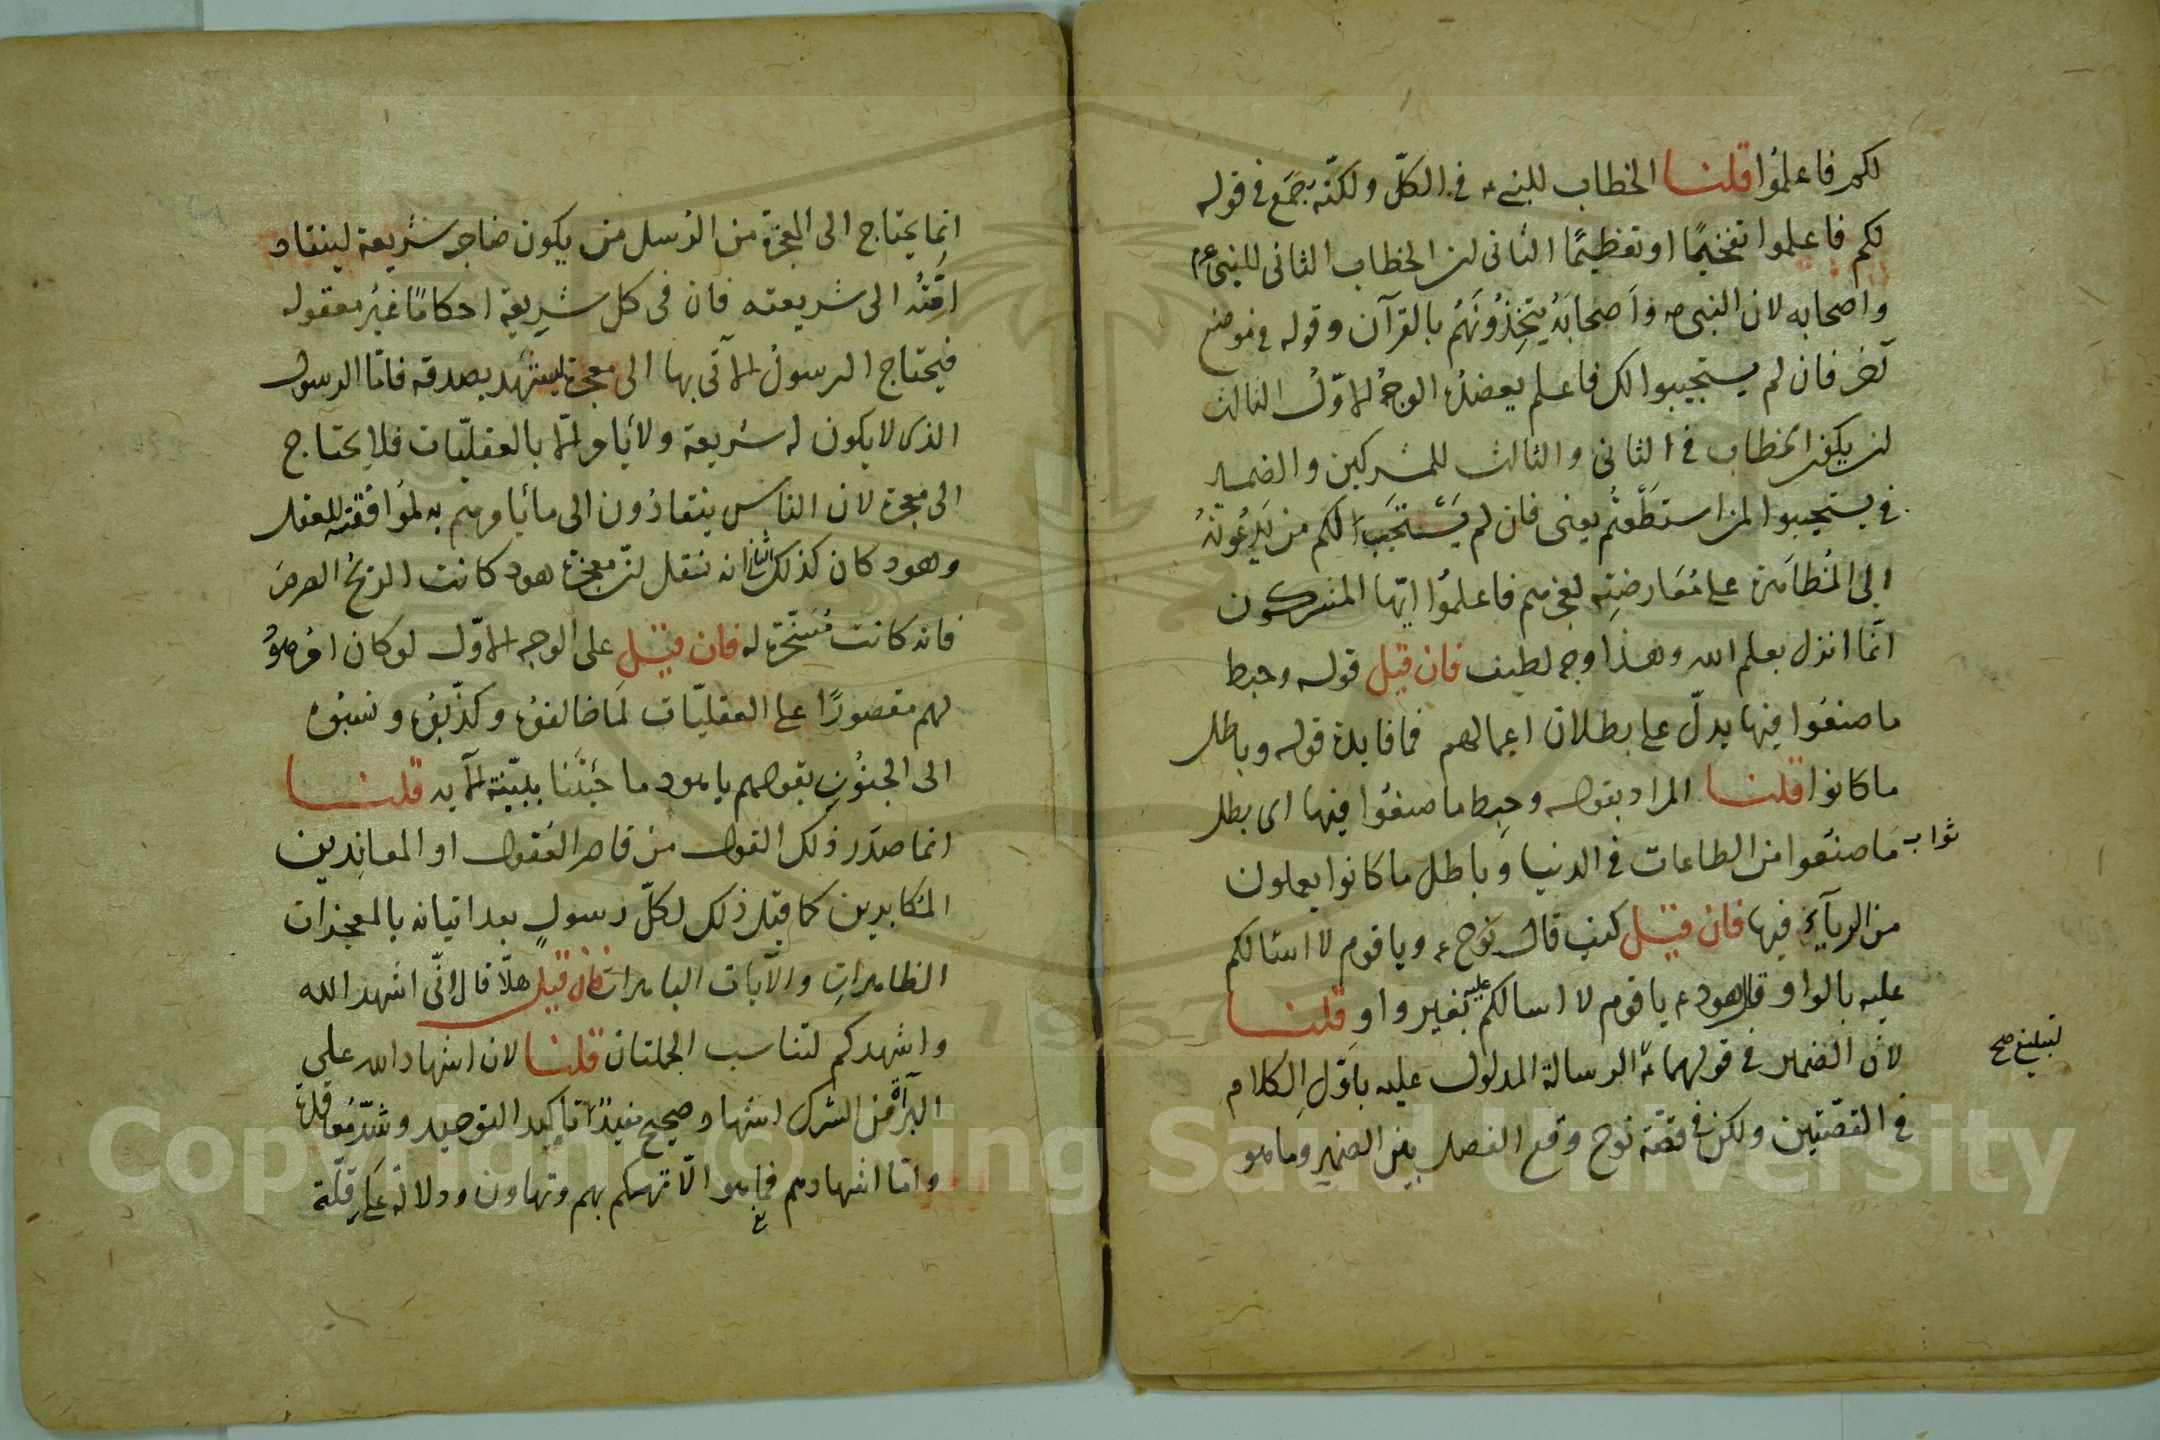 لكم فاعلموا قلنا الخطاب للنبي ء في الكلّ ولكنّه جمع في قوله
لكم فاعلموا تفخيمًا او تعظيمًا الثانى ان الخطاب الثانى للنبى عم
واصحابه لان النبى ص واصحابه يتخذونهم بالقرآن وقوله في موضع
آخر فان لم يستجيبوا لك فاعلم يعضد الوجه الاوّل الثالث
ان يكون الخطاب في الثانى والثالث للمشركين والضمير
في يستجيبوا لمن استطعتم يعنى فان لم يستجب لكم من تدعونه
الى المظاهرة على معارضته لعجزهم فاعلموا ايّها المشركون
انّما انزل بعلم الله وهذا وجه لطيف فان قيل قوله وحبط
ما صنعوا فيها يدلّ على بطلان اعمالهم فما فايدة قوله وباطل
ما كانوا قلنا المراد بقوله وحبط ما صنعوا فيها اى بطل
ثواب ما صنعوا من الطاعات في الدنيا وباطل ما كانوا يعملون
من الريآء فيها فان قيل كيف قال نوح ء ويا قوم لا اسالكم
عليه بالواو وقال هود ء يا قوم لا اسالكم عليه بغير واو قلنا
لان الضمير في قولهما الرسالة المدلول عليه باوّل الكلام
تبليغ صح
في القصّتين ولكن في قصّة نوح وقع الفصل بين الضمير وما هو
انما يحتاج الى المعجزة من الرسل من يكون صاحب شريعة لينقاد
امّته الى شريعته فان في كل شريعة احكامًا غير معقوله
فيحتاج الرسول الآتى بها الى معجزة ليشهد بصدقه فامّا الرسول
الذى لا يكون له شريعة ولا يأمر الّا بالعقليّات فلا يحتاج
الى معجزة لان الناس ينقادون الى ما يأمرهم به لموافقته للعقل
وهود كان كذلك الثانى انه نقل ان معجزة هود كانت الريح الصرصر
فانه كانت مسخّرة له فان قيل على الوجه الاوّل لو كان امرهود
لهم مقصورًا على العقليّات لما خالفوه وكذّبوه ونسبوه
الى الجنون بقولهم يا هود ما جئتنا ببيّنة الآيه قلنا
انما صدر ذلك القول من قاصر العقول او المعاندين
المكابرين كما قيل ذلك لكلّ رسول بعد اتيانه بالمعجزات
الظاهرات والآيات الباهرات فان قيل هلّا قال انّى اشهد الله
واشهدكم لتناسب الجملتان قلنا لان اشهاد الله على
البرآة من الشرك اشهاد صحيح مفيد تاكيد التوحيد وشدّ معاقده
وامّا اشهادهم فما هو الّا تهكم بهم وتهاون ودلالة على قلّة
Copyright © King Saud University
1957